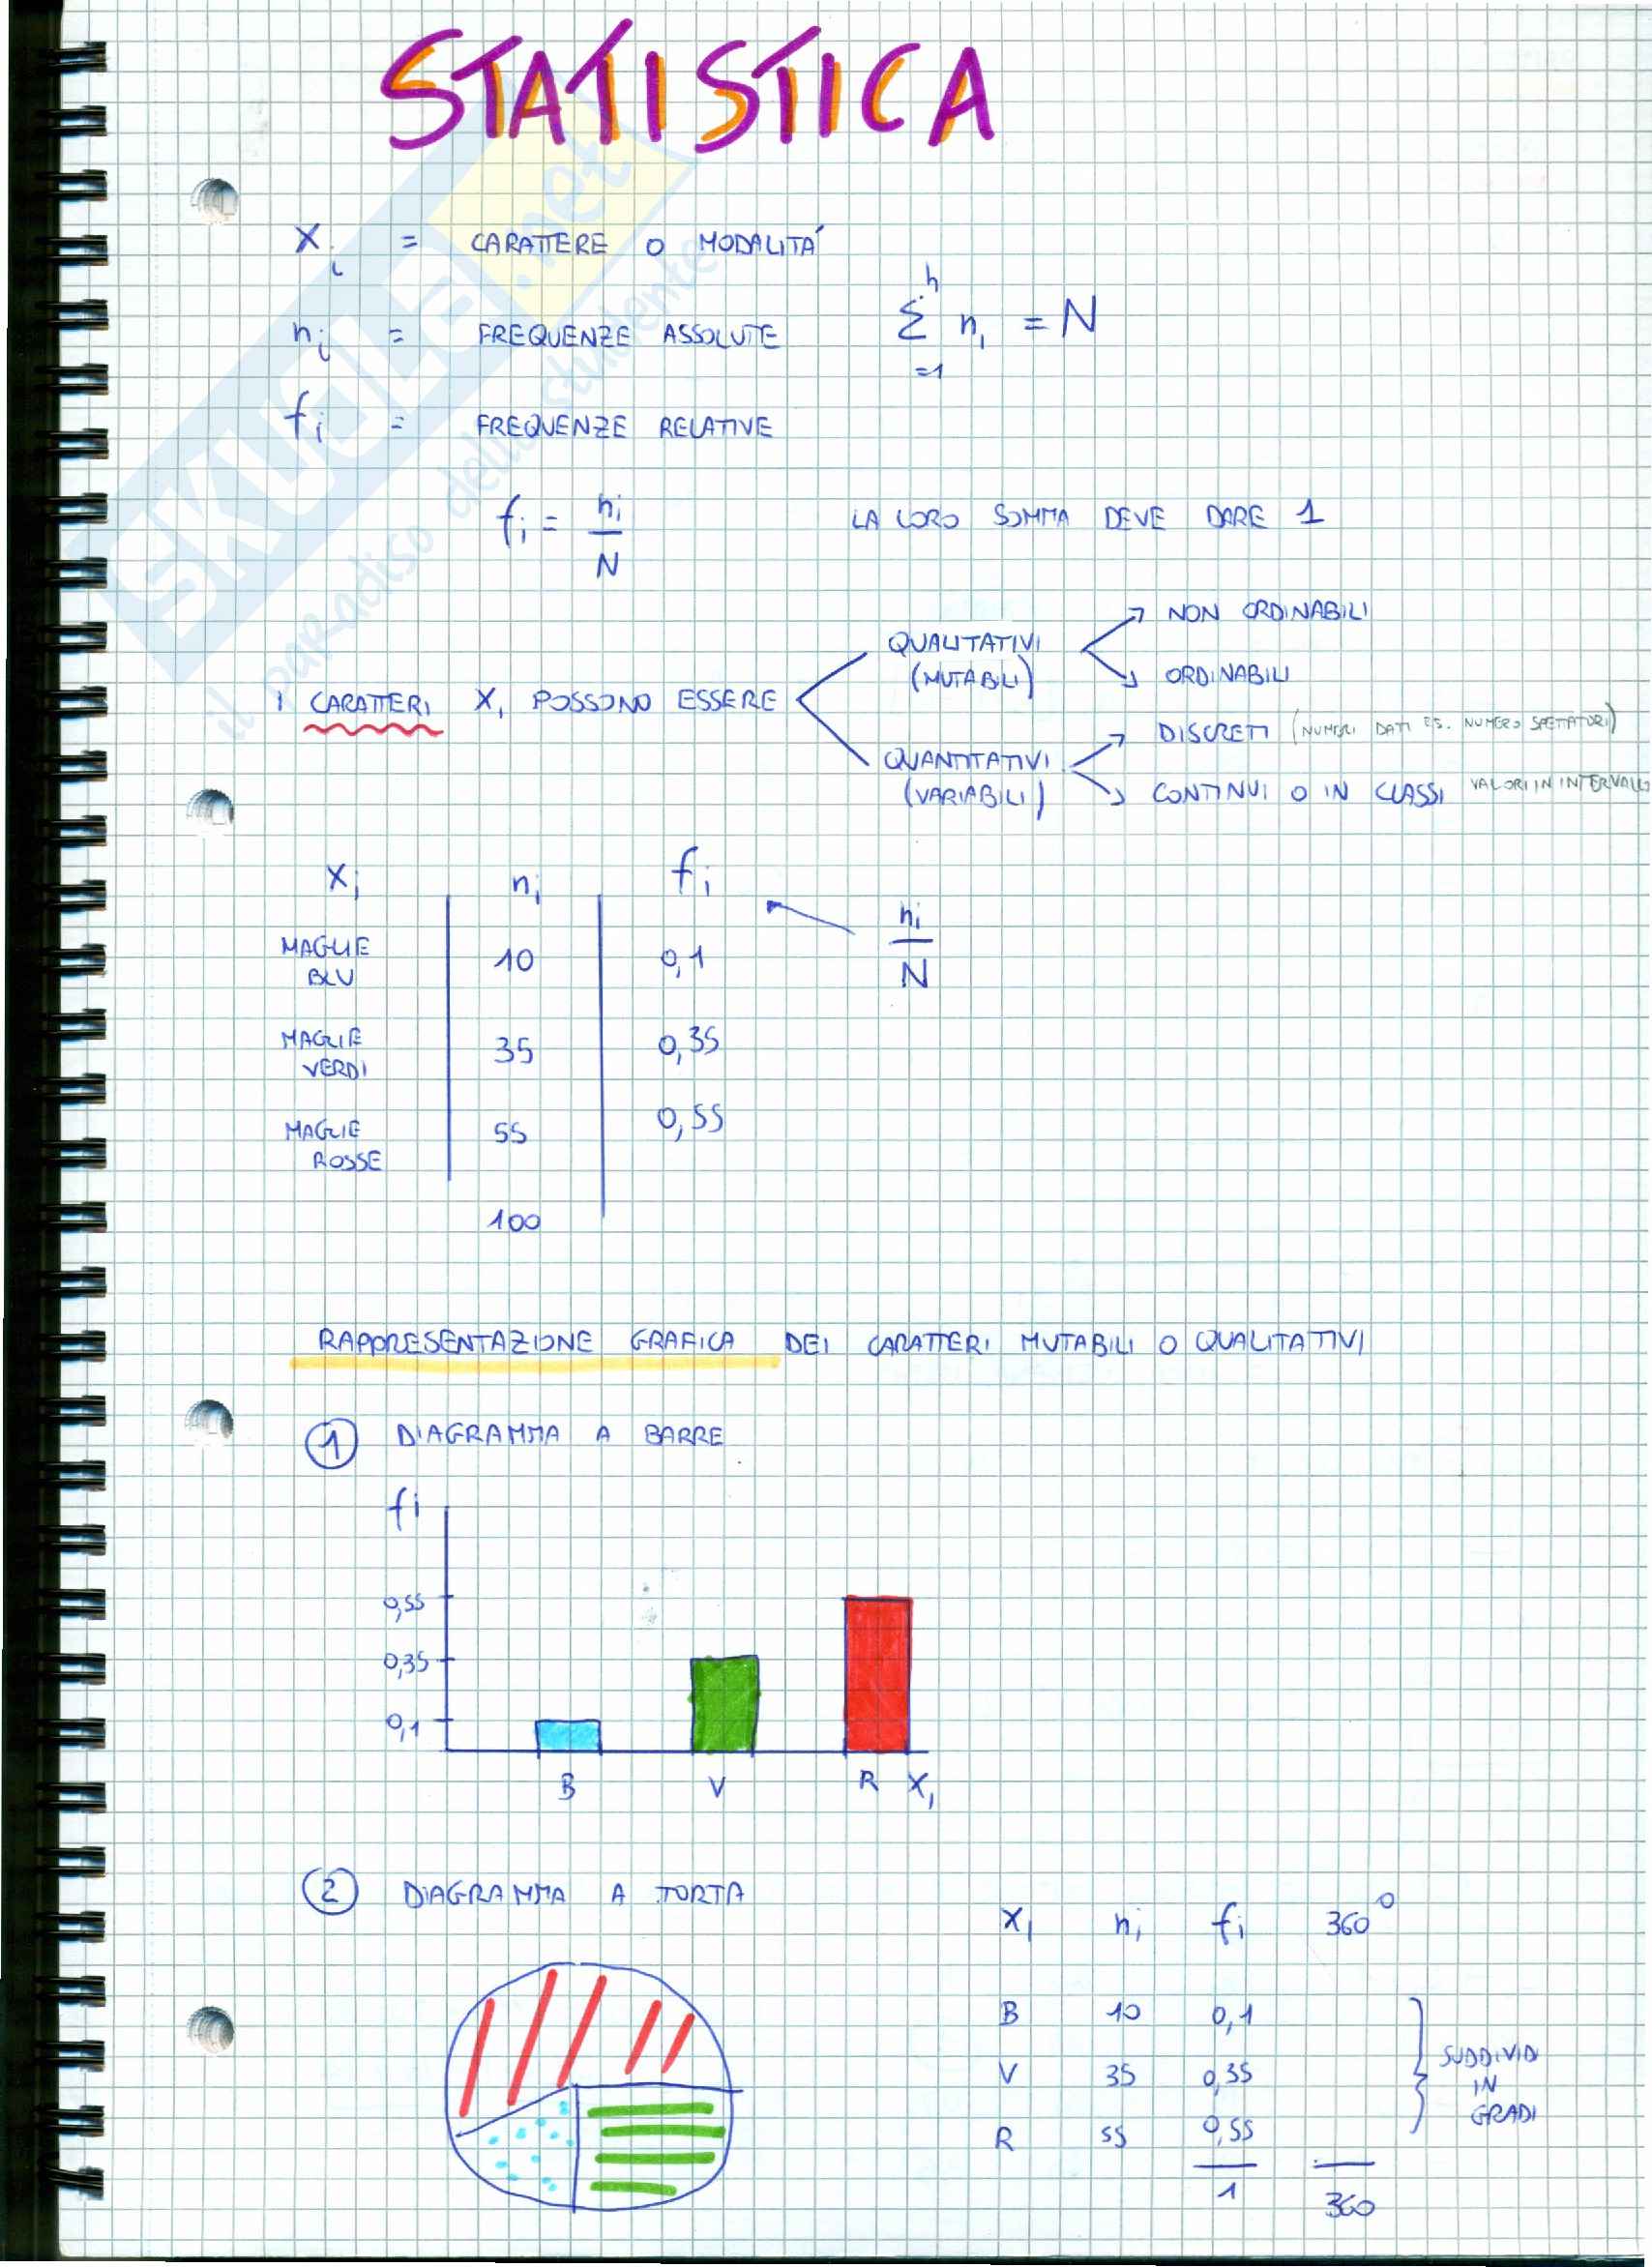 STATISTICA
Xi = CARATTERE O MODALITÁ
ni = FREQUENZE ASSOLUTE
h
Σ ni = N
=1
fi = FREQUENZE RELATIVE
fi = ni/N LA LORO SOMMA DEVE DARE 1
I CARATTERI Xi POSSONO ESSERE
QUALITATIVI
(MUTABILI)
NON ORDINABILI
ORDINABILI
QUANTITATIVI
(VARIABILI)
DISCRETI (NUMERI DATI ES. NUMERO SPETTATORI)
CONTINUI O IN CLASSI VALORI IN INTERVALLI
Xi ni fi
ni/N
MAGLIE
BLU 10 0,1
MAGLIE
VERDI 35 0,35
MAGLIE
ROSSE 55 0,55
100
RAPPRESENTAZIONE GRAFICA DEI CARATTERI MUTABILI O QUALITATIVI
1 DIAGRAMMA A BARRE
fi
0,55
0,35
0,1
B V R Xi
2 DIAGRAMMA A TORTA
Xi ni fi 360°
B 10 0,1
V 35 0,35
R 55 0,55
1 360
SUDDIVIDI
IN
GRADI
SKUOLA.net
il paradiso dello studente